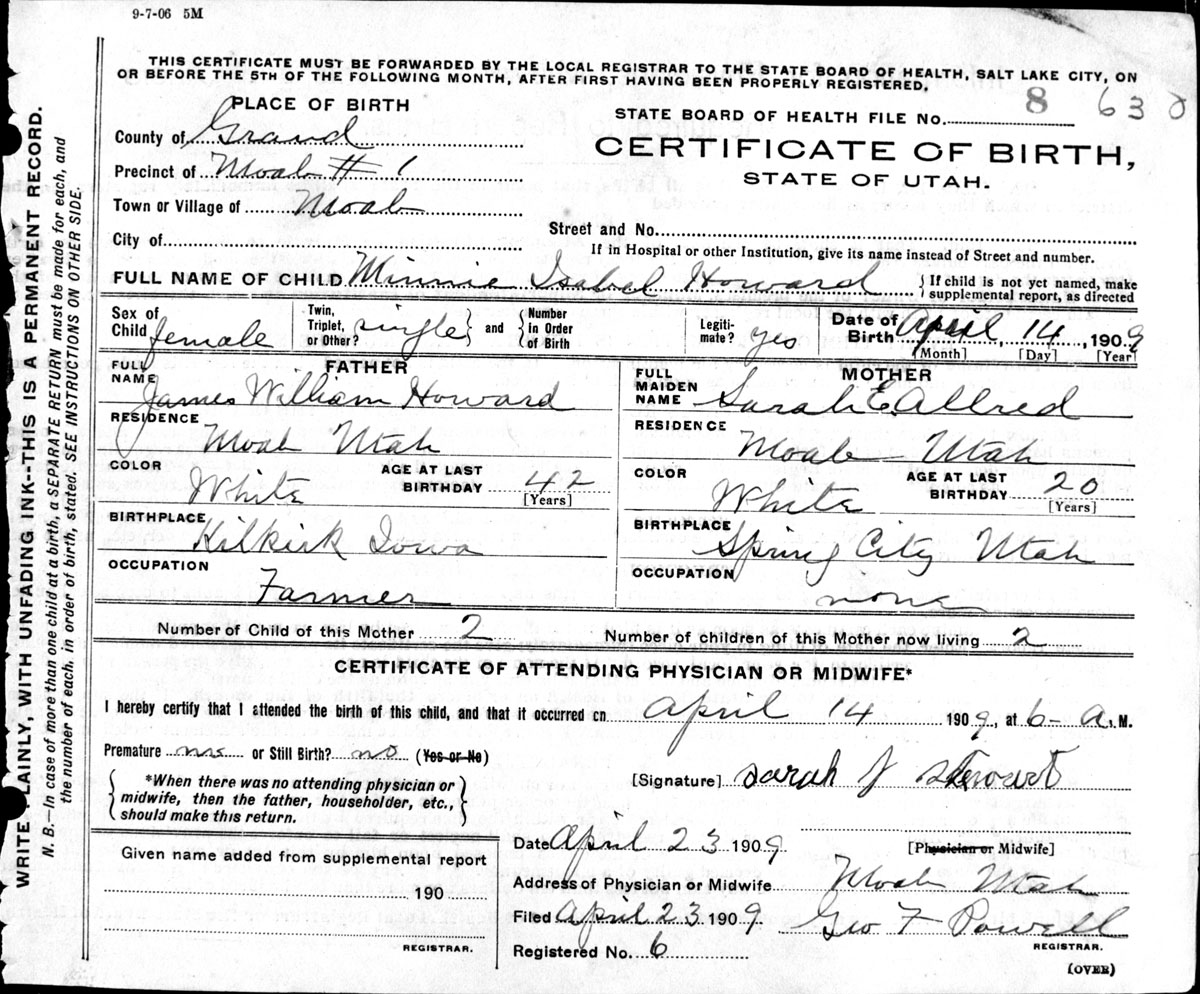 9-7-06 5M
THIS CERTIFICATE MUST BE FORWARDED BY THE LOCAL REGISTRAR TO THE STATE BOARD OF HEALTH, SALT LAKE CITY, ON
OR BEFORE THE 5TH OF THE FOLLOWING MONTH, AFTER FIRST HAVING BEEN PROPERLY REGISTERED.
WRITE LAINLY, WITH UNFADING INK--THIS IS A PERMANENT RECORD.
N. B.—In case of more than one child at a birth, a SEPARATE RETURN must be made for each, and
the number of each, in order of birth, stated. SEE INSTRUCTIONS ON OTHER SIDE.
PLACE OF BIRTH
County of Grand
Precinct of Moab # 1
Town or Village of Moab
City of
STATE BOARD OF HEALTH FILE No. 8 630
CERTIFICATE OF BIRTH,
STATE OF UTAH.
Street and No.
If in Hospital or other Institution, give its name instead of Street and number.
FULL NAME OF CHILD Minnie Isabel Howard } If child is not yet named, make supplemental report, as directed
Sex of Child female Twin, Triplet, or Other? single } and { Number in Order of Birth Legiti-mate? yes Date of Birth April, 14, 1909
[Month] [Day] [Year]
FATHER
FULL NAME James William Howard
RESIDENCE Moab Utah
COLOR White AGE AT LAST BIRTHDAY 42
[Years]
BIRTHPLACE Kilkirk Iowa
OCCUPATION Farmer
MOTHER
FULL MAIDEN NAME Sarah E. Allred
RESIDENCE Moab Utah
COLOR White AGE AT LAST BIRTHDAY 20
[Years]
BIRTHPLACE Spring City Utah
OCCUPATION none
Number of Child of this Mother 2 Number of children of this Mother now living 2
CERTIFICATE OF ATTENDING PHYSICIAN OR MIDWIFE*
I hereby certify that I attended the birth of this child, and that it occurred on April 14 1909, at 6- A.M.
Premature or Still Birth? no (Yes or No)
{ *When there was no attending physician or
midwife, then the father, householder, etc.,
should make this return. }
[Signature] Sarah J Stewart
Given name added from supplemental report
190
REGISTRAR.
Date April 23 1909 [Physician or Midwife]
Address of Physician or Midwife Moab Utah
Filed April 23 1909 Geo F Powell
REGISTRAR.
Registered No. 6
(OVER)